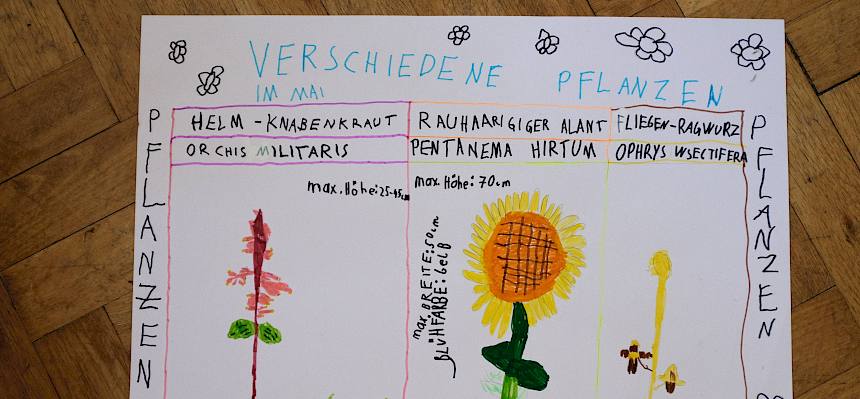 VERSCHIEDENE PFLANZEN
IM MAI
PFLANZEN
HELM - KNABENKRAUT
ORCHIS MILITARIS
max. Höhe: 25-45cm
RAUHAARIGIGER ALANT
PENTANEMA HIRTUM
max. Höhe: 70cm
max. BREITE: 50cm
BLÜHFARBE: GELB
FLIEGEN-RAGWURZ
OPHRYS INSECTIFERA
PFLANZEN